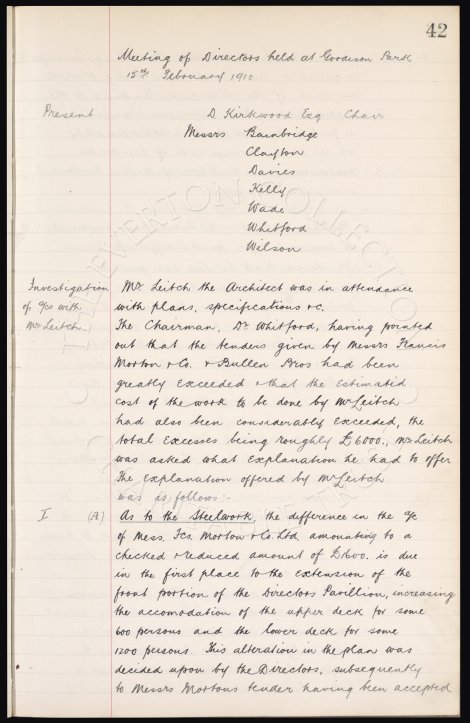 42
Meeting of Directors held at Goodison Park
15th February 1910
Present D. Kirkwood Esq Chair
Messrs Bainbridge
Clayton
Davies
Kelly
Wade
Whitford
Wilson
Investigation Mr Leitch the Architect was in attendance
of a/cs with with plans, specifications &c.
Mr Leitch. The Chairman, Dr Whitford, having pointed
out that the tenders given by Messrs Francis
Morton & Co. & Bullen Bros had been
greatly exceeded & that the estimated
cost of the work to be done by Mr Leitch
had also been considerably exceeded, the
total excesses being roughly £6000., Mr Leitch
was asked what explanation he had to offer
The explanation offered by Mr Leitch
was as follows:-
I (A) As to the Steelwork, the difference in the a/c
of Mess. Fcs. Morton & Co. Ltd amounting to a
checked & reduced amount of £1600. is due
in the first place to the extension of the
front portion of the Directors Pavillion, increasing
the accomodation of the upper deck for some
600 persons and the lower deck for some
1200 persons. This alteration in the plan was
decided upon by the Directors, subsequently
to Messrs Mortons tender having been accepted
THE EVERTON COLLECTION